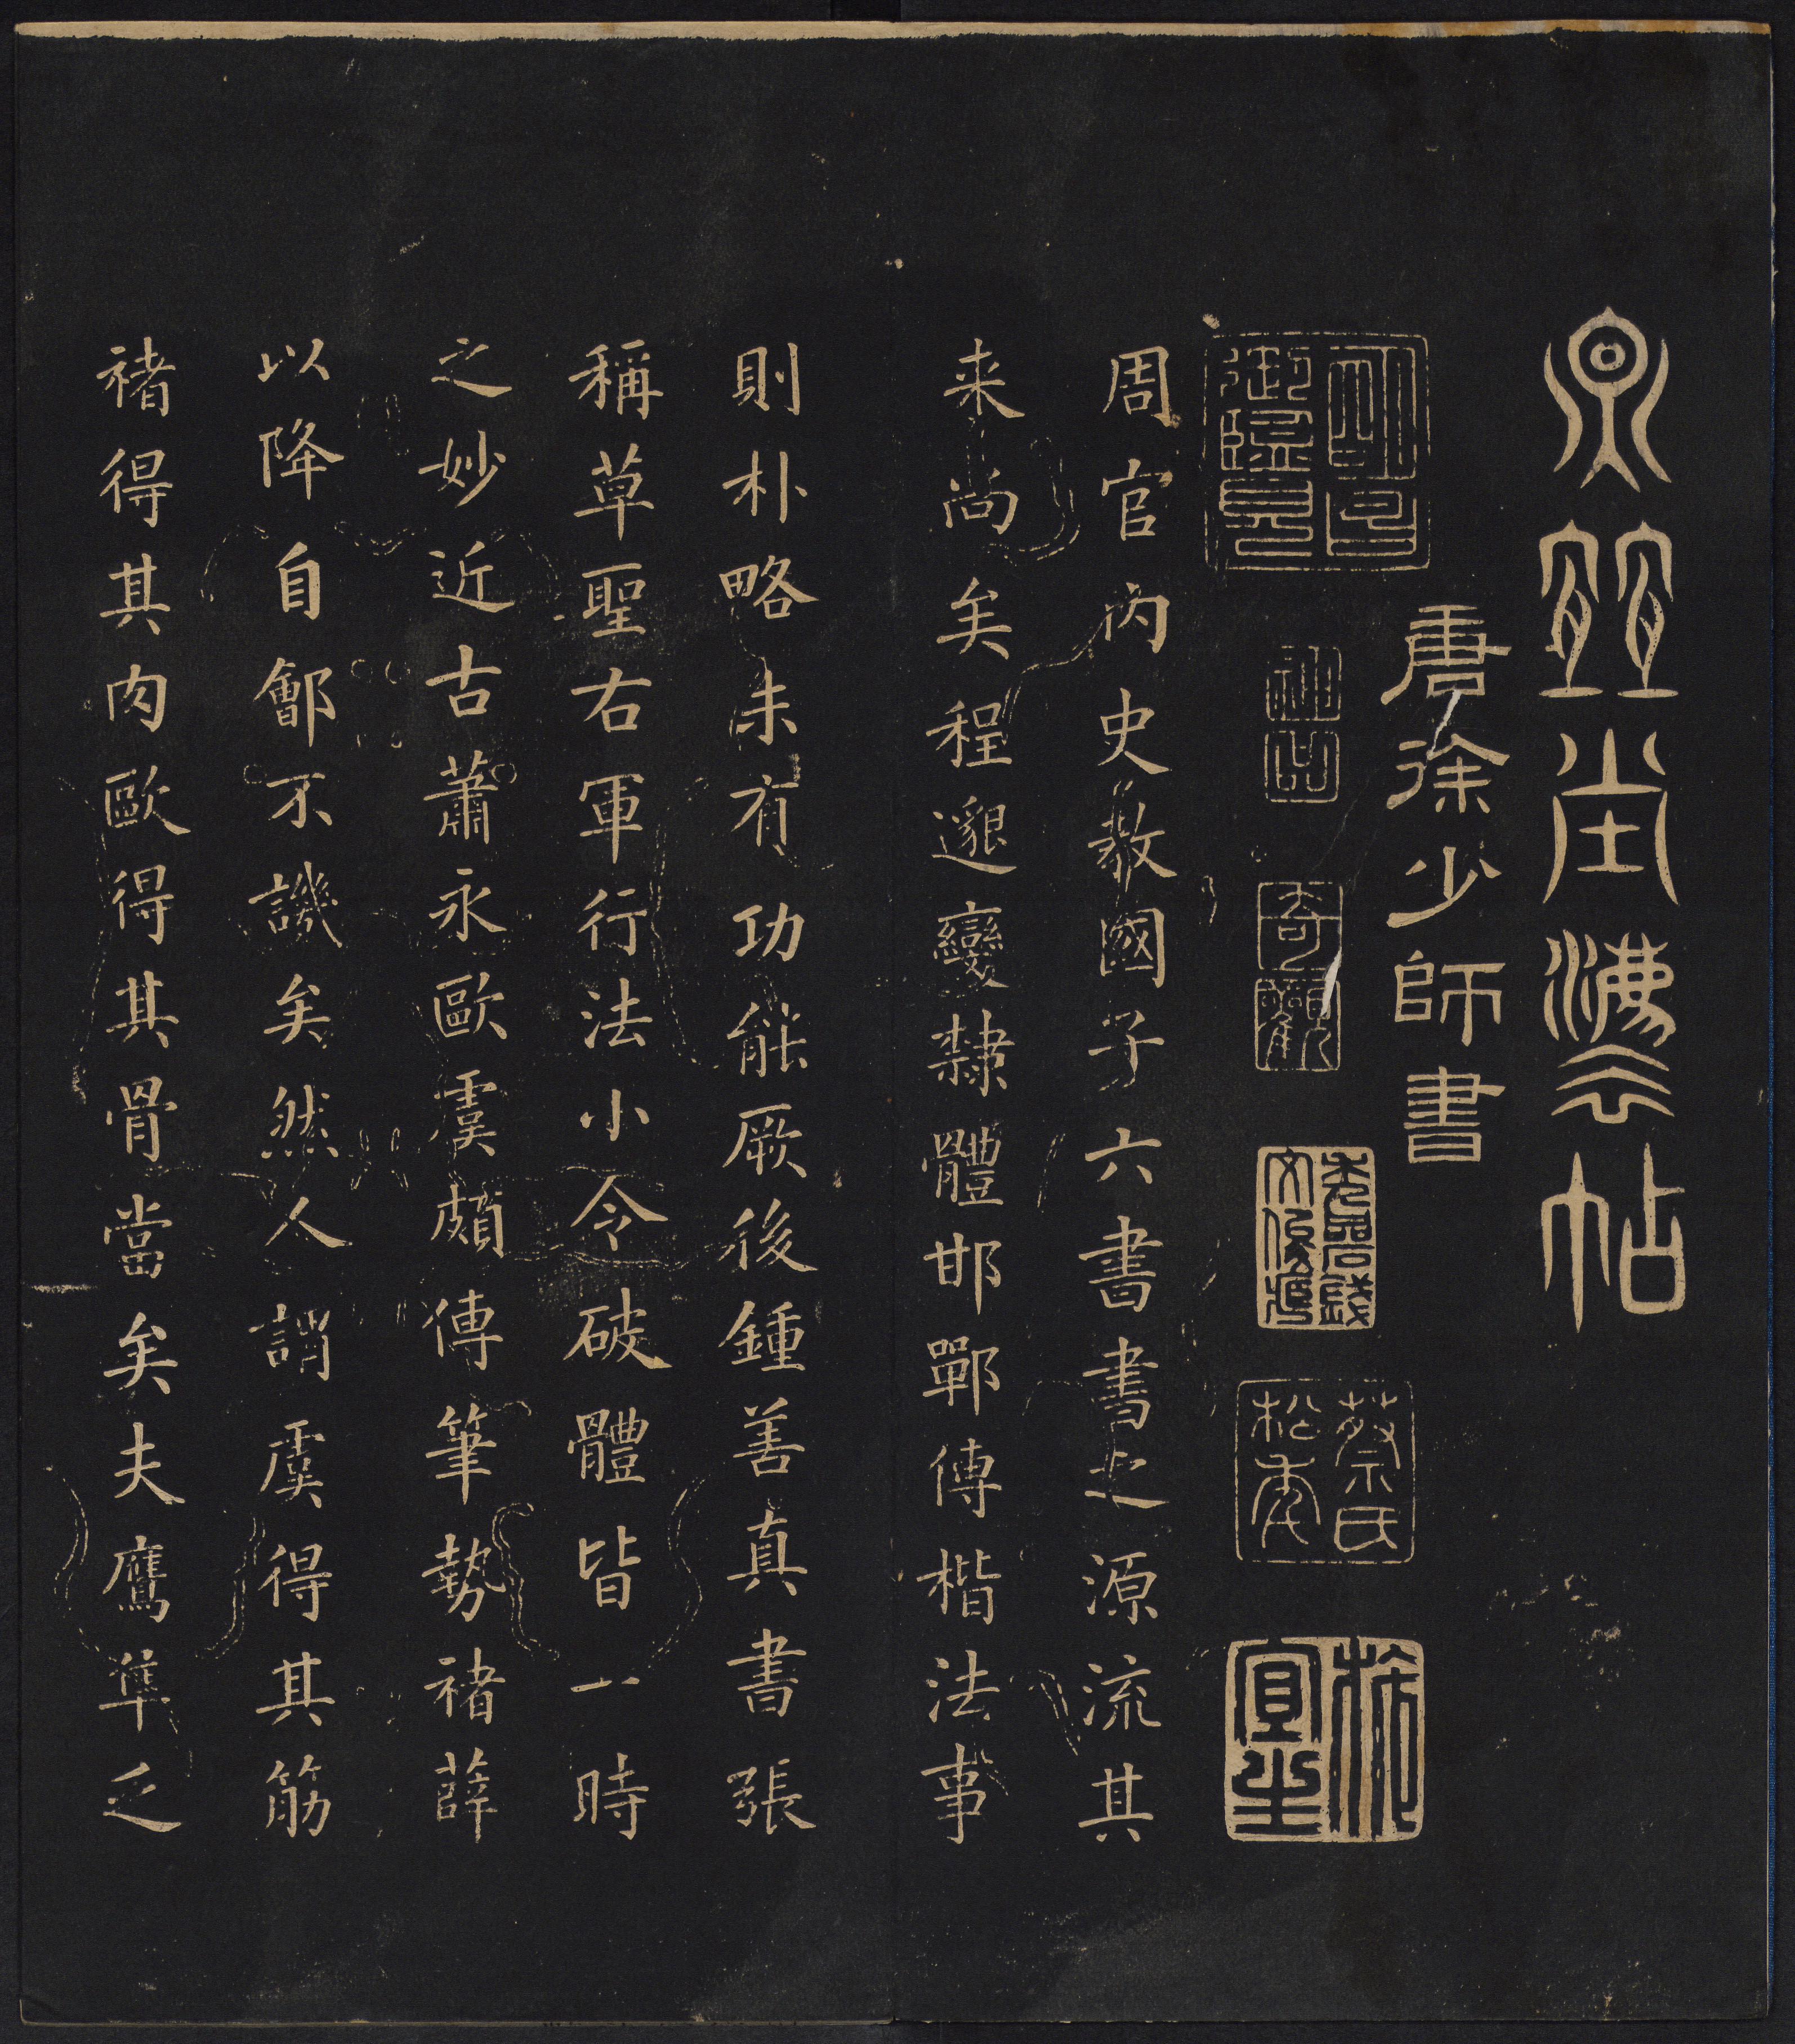 堂灋帖
唐徐少師書
明昌御覽
神品
奇觀
蔡氏松年
周官內史教國子六書書之源流其
来尚矣程邈變隸體邯鄲傳楷法事
則朴略未有功能厥後鍾善真書張
稱草聖右軍行法小令破體皆一時
之妙近古蕭永歐虞頗傳筆勢褚薛
以降自鄶不譏矣然人謂虞得其筋
褚得其肉歐得其骨當矣夫鷹隼乏